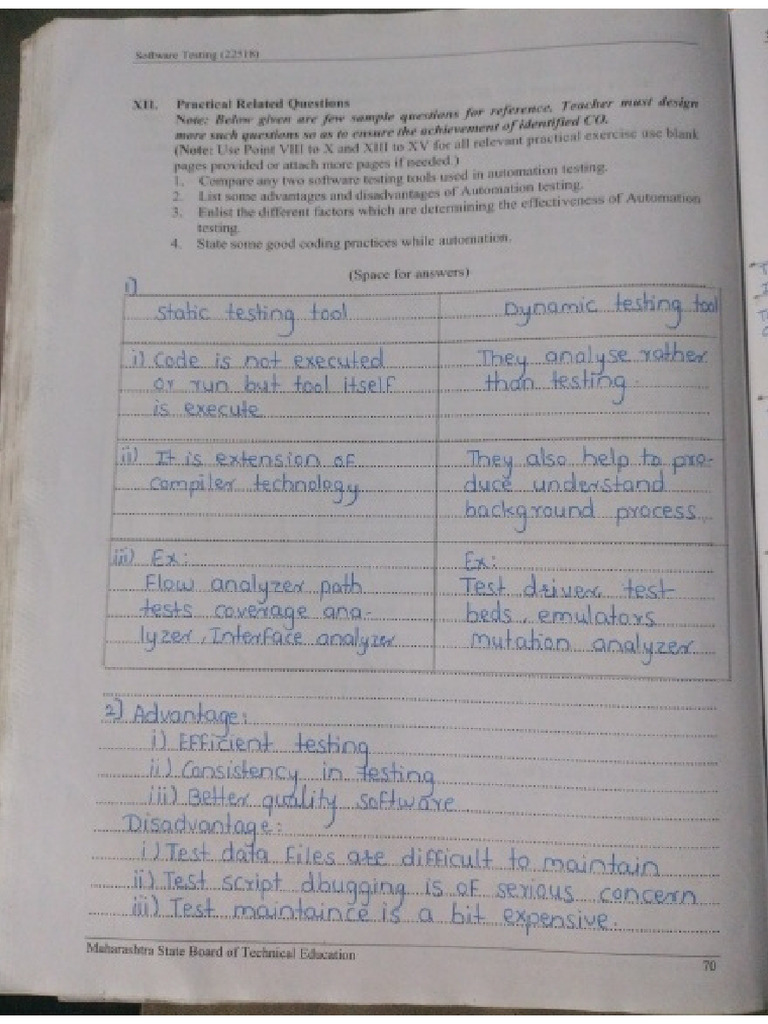 Software Testing (22518)
XII. Practical Related Questions
Note: Below given are few sample questions for reference. Teacher must design
more such questions so as to ensure the achievement of identified CO.
(Note: Use Point VIII to X and XIII to XV for all relevant practical exercise use blank
pages provided or attach more pages if needed.)
1. Compare any two software testing tools used in automation testing.
2. List some advantages and disadvantages of Automation testing.
3. Enlist the different factors which are determining the effectiveness of Automation
testing.
4. State some good coding practices while automation.
(Space for answers)
1)
Static testing tool
Dynamic testing tool
i) Code is not executed
or run but tool itself
is execute
They analyse rather
than testing.
ii) It is extension of
compiler technology
They also help to pro-
duce understand
background process
iii) Ex:
Flow analyzer path
tests coverage ana-
lyzer, Interface analyzer
Ex:
Test driver test
beds, emulators
mutation analyzer
2) Advantage:
i) Efficient testing
ii) Consistency in testing
iii) Better quality software
Disadvantage:
i) Test data files are difficult to maintain
ii) Test script dbugging is of serious concern
iii) Test maintaince is a bit expensive.
Maharashtra State Board of Technical Education
70